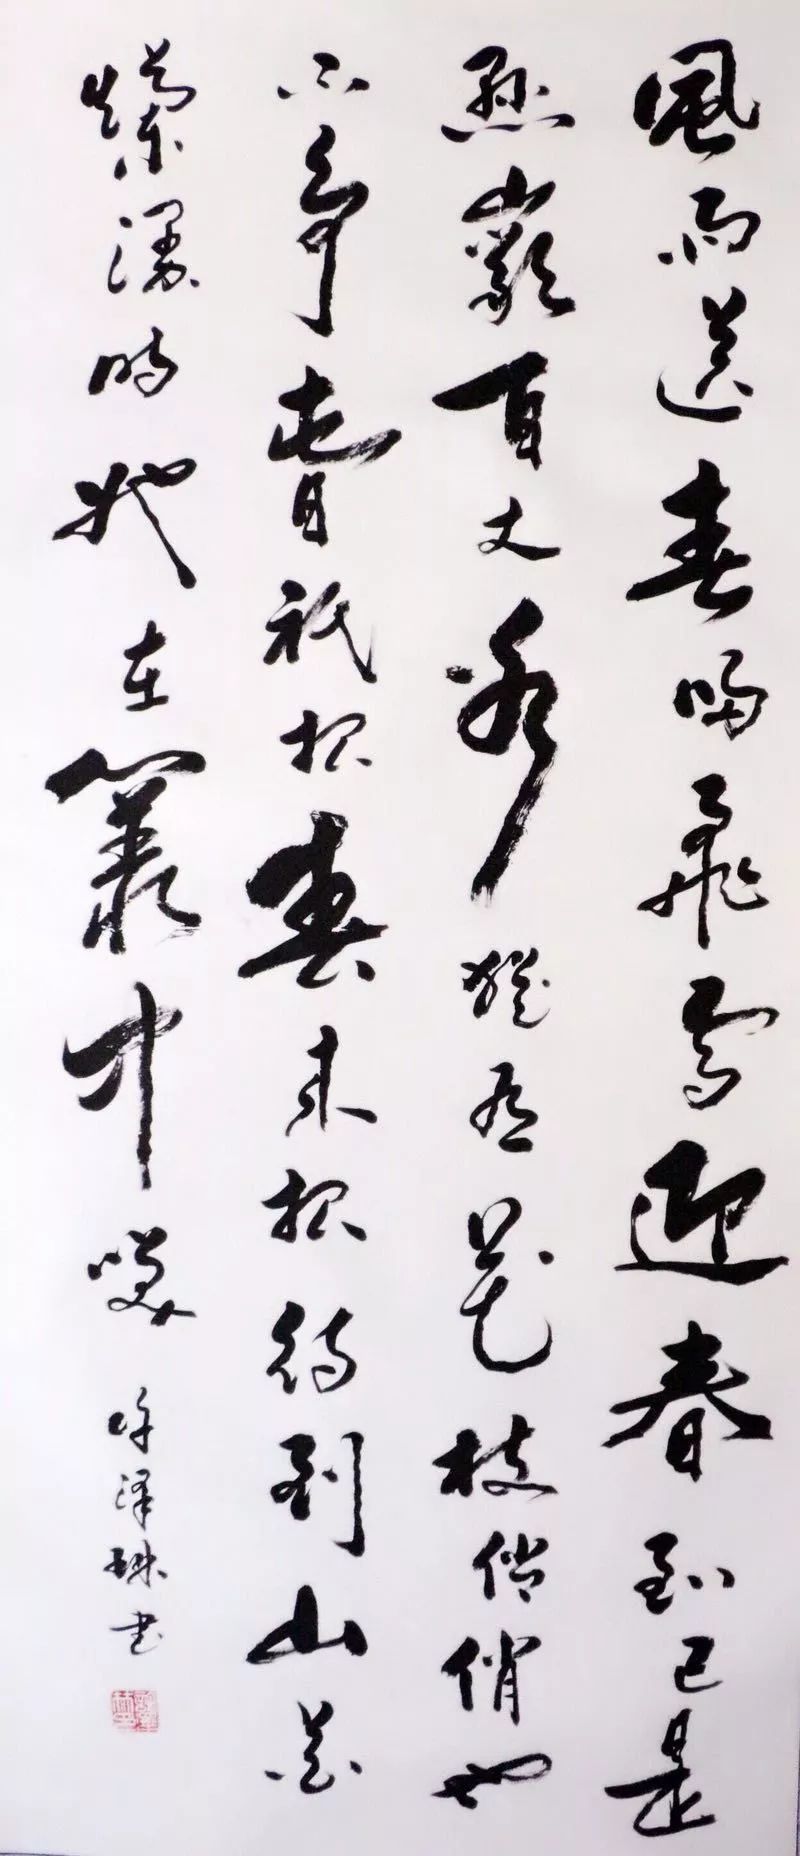 風雨送春歸飛雪迎春到已是
懸巖百丈冰猶有花枝俏俏也
不爭春祇把春来報待到山花
爛漫時她在叢中笑
許澤珠书